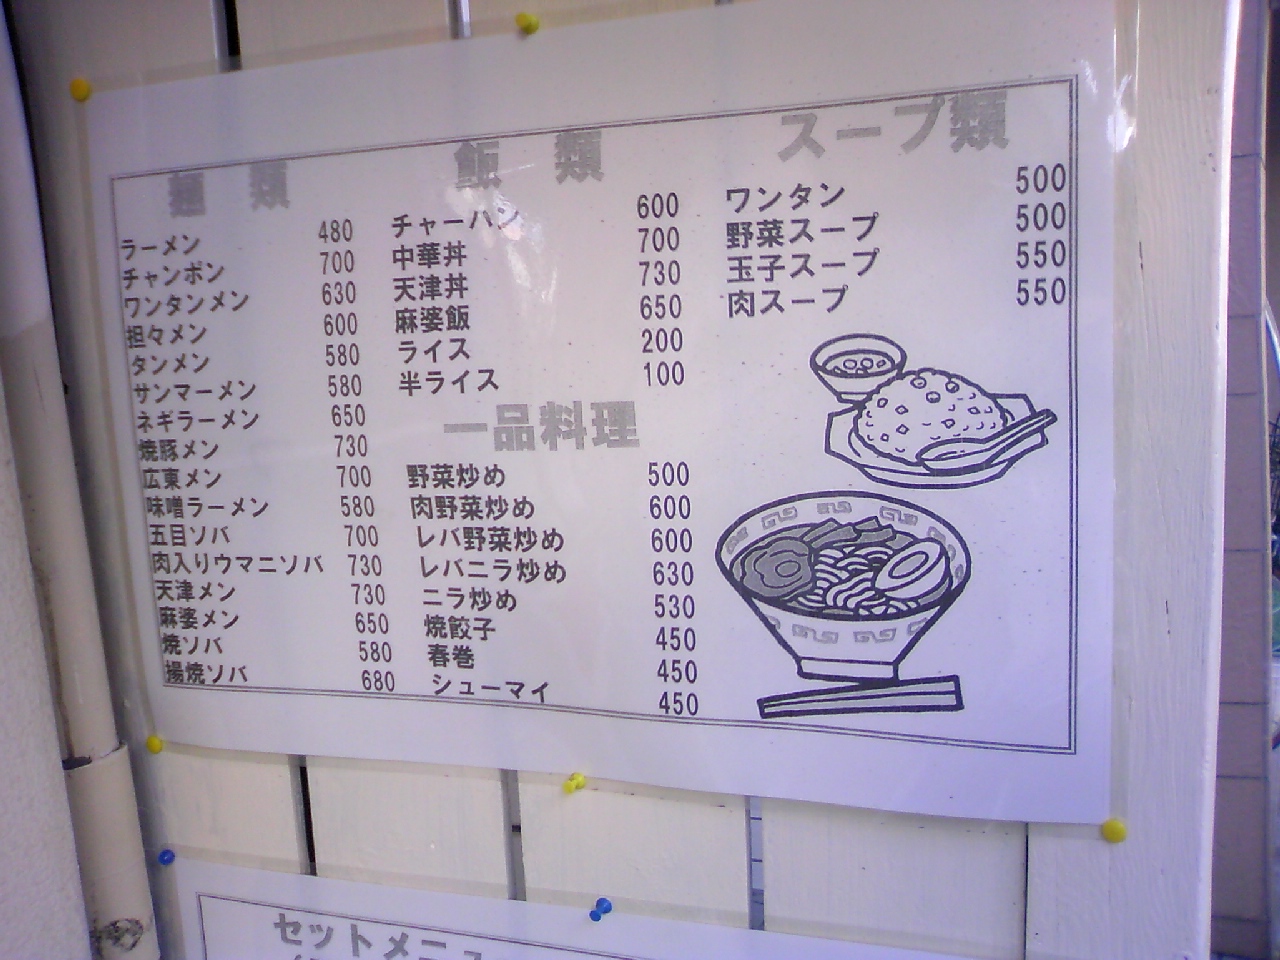 麺 類
ラーメン 480
チャンポン 700
ワンタンメン 630
担々メン 600
タンメン 580
サンマーメン 580
ネギラーメン 650
焼豚メン 730
広東メン 700
味噌ラーメン 580
五目ソバ 700
肉入りウマニソバ 730
天津メン 730
麻婆メン 650
焼ソバ 580
揚焼ソバ 680
飯 類
チャーハン 600
中華丼 700
天津丼 730
麻婆飯 650
ライス 200
半ライス 100
一品料理
野菜炒め 500
肉野菜炒め 600
レバ野菜炒め 600
レバニラ炒め 630
ニラ炒め 530
焼餃子 450
春巻 450
シューマイ 450
スープ類
ワンタン 500
野菜スープ 500
玉子スープ 550
肉スープ 550
セットメニュ